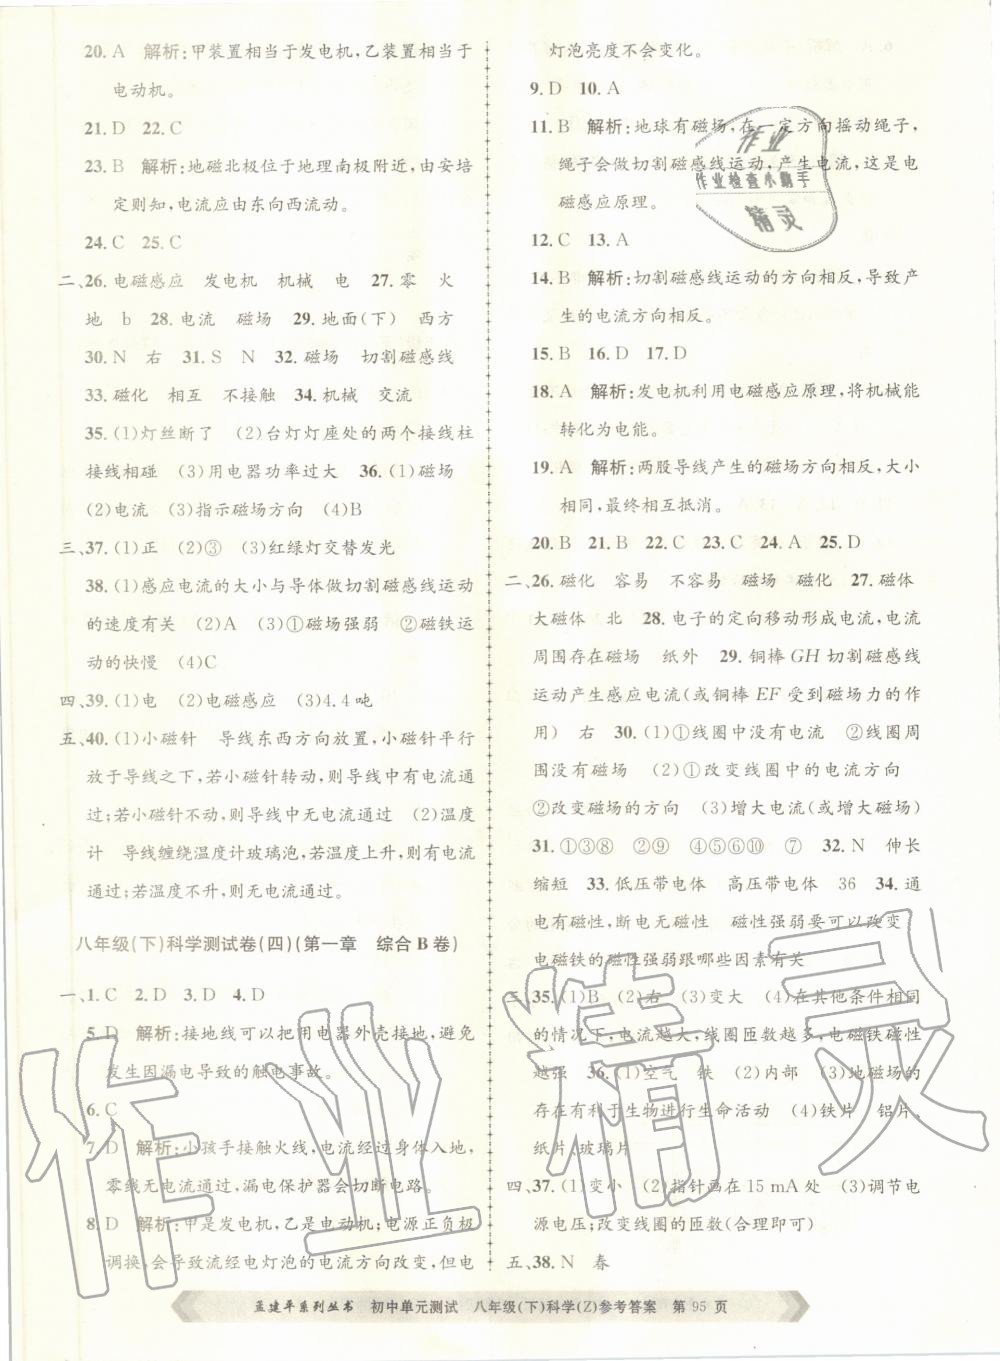 20. A　解析:甲装置相当于发电机,乙装置相当于
电动机。
21. D　22. C
23. B　解析:地磁北极位于地理南极附近,由安培
定则知,电流应由东向西流动。
24. C　25. C
二、26. 电磁感应　发电机　机械　电　27. 零　火
地　b　28. 电流　磁场　29. 地面(下)　西方
30. N　右　31. S　N　32. 磁场　切割磁感线
33. 磁化　相互　不接触　34. 机械　交流
35. (1)灯丝断了　(2)台灯灯座处的两个接线柱
接线相碰　(3)用电器功率过大　36. (1)磁场
(2)电流　(3)指示磁场方向　(4)B
三、37. (1)正　(2)③　(3)红绿灯交替发光
38. (1)感应电流的大小与导体做切割磁感线运动
的速度有关　(2)A　(3)①磁场强弱　②磁铁运
动的快慢　(4)C
四、39. (1)电　(2)电磁感应　(3)4.4吨
五、40. (1)小磁针　导线东西方向放置,小磁针平行
放于导线之下,若小磁针转动,则导线中有电流通
过;若小磁针不动,则导线中无电流通过　(2)温度
计　导线缠绕温度计玻璃泡,若温度上升,则有电流
通过;若温度不升,则无电流通过。
八年级(下)科学测试卷(四)(第一章　综合B卷)
一、1. C　2. D　3. D　4. D
5. D　解析:接地线可以把用电器外壳接地,避免
发生因漏电导致的触电事故。
6. C
7. D　解析:小孩手接触火线,电流经过身体入地,
零线无电流通过,漏电保护器会切断电路。
8. D　解析:甲是发电机,乙是电动机;电源正负极
调换,会导致流经电灯泡的电流方向改变,但电
灯泡亮度不会变化。
9. D　10. A
11. B　解析:地球有磁场,在一定方向摇动绳子,
绳子会做切割磁感线运动,产生电流,这是电
磁感应原理。
12. C　13. A
14. B　解析:切割磁感线运动的方向相反,导致产
生的电流方向相反。
15. B　16. D　17. D
18. A　解析:发电机利用电磁感应原理,将机械能
转化为电能。
19. A　解析:两股导线产生的磁场方向相反,大小
相同,最终相互抵消。
20. B　21. B　22. C　23. C　24. A　25. D
二、26. 磁化　容易　不容易　磁场　磁化　27. 磁体
大磁体　北　28. 电子的定向移动形成电流,电流
周围存在磁场　纸外　29. 铜棒GH切割磁感线
运动产生感应电流(或铜棒EF受到磁场力的作
用)　右　30. (1)①线圈中没有电流　②线圈周
围没有磁场　(2)①改变线圈中的电流方向
②改变磁场的方向　(3)增大电流(或增大磁场)
31. ①③⑧　②⑨　④⑤⑥⑩　⑦　32. N　伸长
缩短　33. 低压带电体　高压带电体　36　34. 通
电有磁性,断电无磁性　磁性强弱要可以改变
电磁铁的磁性强弱跟哪些因素有关
三、35. (1)B　(2)右　(3)变大　(4)在其他条件相同
的情况下,电流越大,线圈匝数越多,电磁铁磁性
越强　36. (1)空气　铁　(2)内部　(3)地磁场的
存在有利于生物进行生命活动　(4)铁片　铝片、
纸片、玻璃片
四、37. (1)变小　(2)指针画在15 mA处　(3)调节电
源电压;改变线圈的匝数(合理即可)
五、38. N　春
作业
作业检查小助手
精灵
作业精灵
孟建平系列丛书　初中单元测试　八年级(下)科学(Z)参考答案　第95页